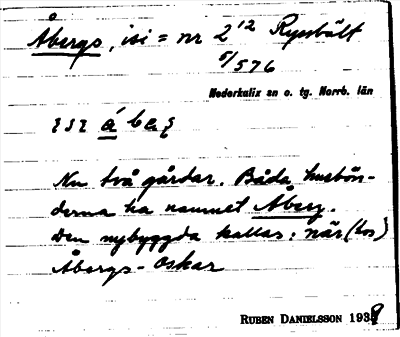 Åbergs, isi = nr 2¹² Ryssbält
5/576
Nederkalix sn o. tg. Norrb. län
Nu två gårdar. Båda husbön-
derna ha namnet Åberg.
Den nybyggda kallas: når (hos)
Åbergs-Oskar
RUBEN DANIELSSON 1939